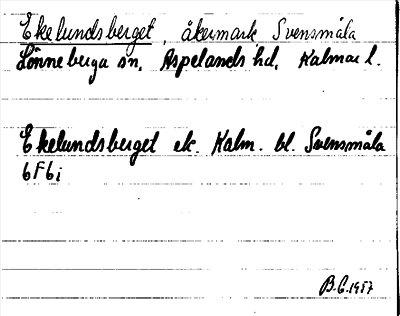 Ekelundsberget, åkermark Svensmåla
Lönneberga sn, Aspelands hd, Kalmar l.
Ekelundsberget ek. Kalm. bl. Svensmåla
6F6i
B.G. 1957